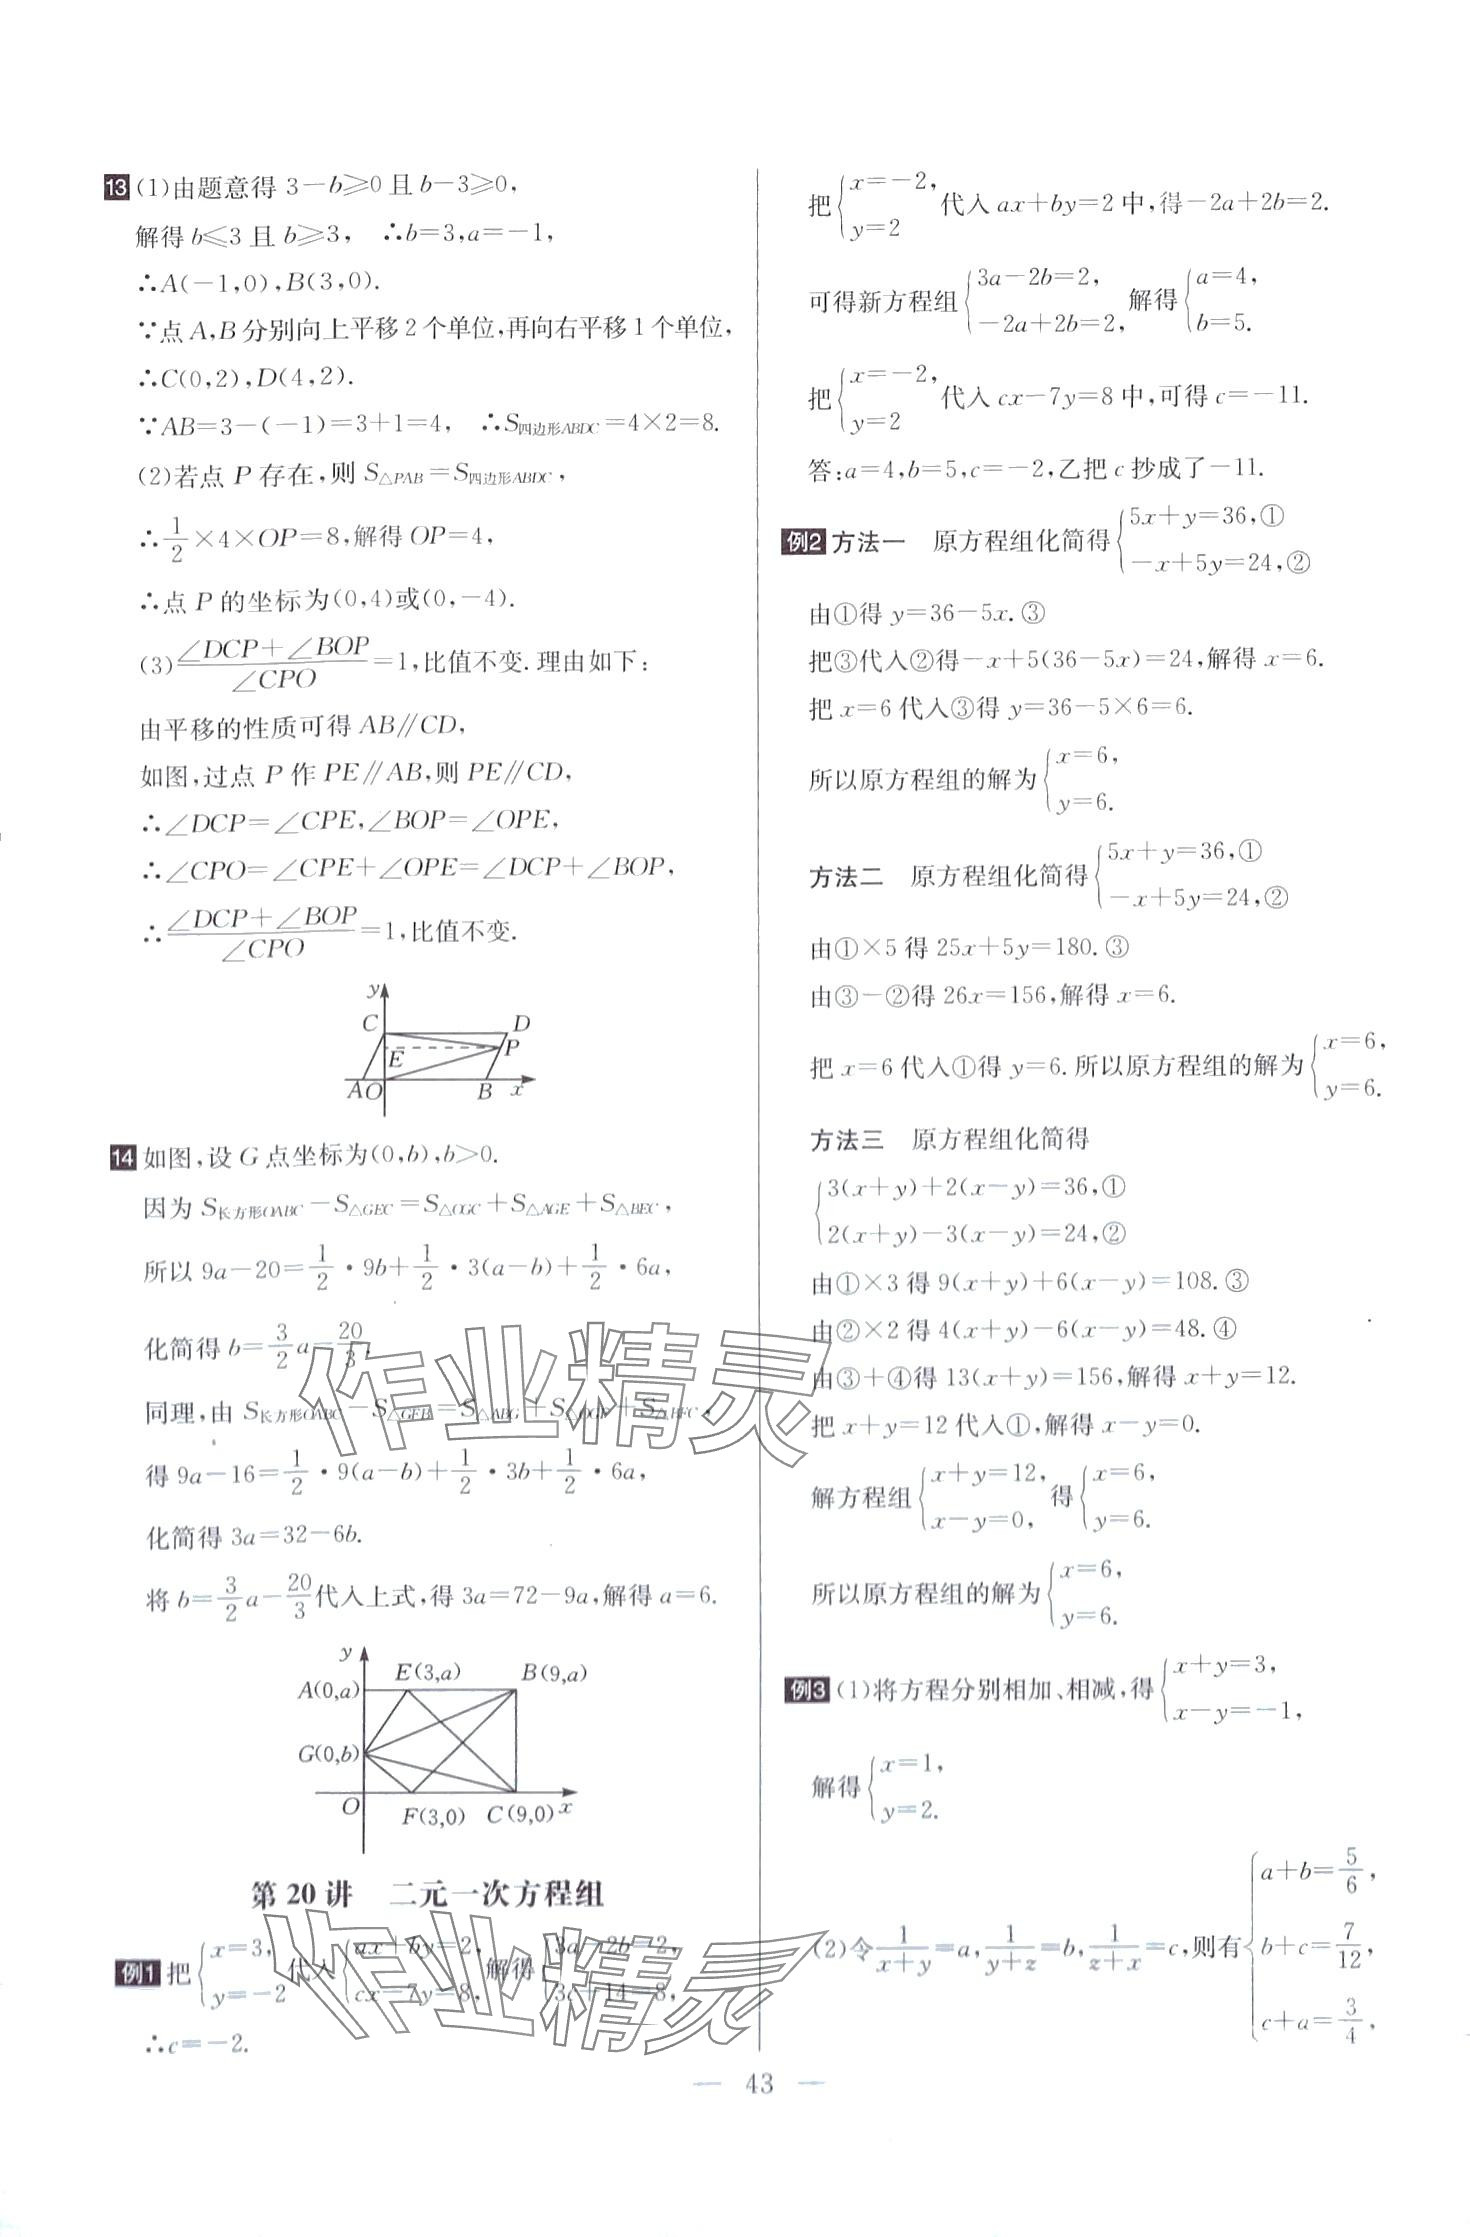 13 (1)由题意得 3－b≥0 且 b－3≥0,
解得 b≤3 且 b≥3, ∴b=3,a=－1,
∴A(－1,0),B(3,0).
∵点 A,B 分别向上平移 2 个单位,再向右平移 1 个单位,
∴C(0,2),D(4,2).
∵AB=3－(－1)=3+1=4, ∴S四边形ABDC=4×2=8.
(2)若点 P 存在,则 S△PAB=S四边形ABDC,
∴1/2×4×OP=8,解得 OP=4,
∴点 P 的坐标为(0,4)或(0,－4).
(3)(∠DCP+∠BOP)/∠CPO=1,比值不变.理由如下:
由平移的性质可得 AB∥CD,
如图,过点 P 作 PE∥AB,则 PE∥CD,
∴∠DCP=∠CPE,∠BOP=∠OPE,
∴∠CPO=∠CPE+∠OPE=∠DCP+∠BOP,
∴(∠DCP+∠BOP)/∠CPO=1,比值不变.
y
C D
E P
A O B x
14 如图,设 G 点坐标为(0,b),b>0.
因为 S长方形OABC－S△GEC=S△OGC+S△AGE+S△BEC,
所以 9a－20=1/2·9b+1/2·3(a－b)+1/2·6a,
化简得 b=3/2a－20/3,
同理,由 S长方形OABC－S△GFB=S△ABG+S△OGF+S△BFC,
得 9a－16=1/2·9(a－b)+1/2·3b+1/2·6a,
化简得 3a=32－6b.
将 b=3/2a－20/3代入上式,得 3a=72－9a,解得 a=6.
y
A(0,a) E(3,a) B(9,a)
G(0,b)
O F(3,0) C(9,0) x
第 20 讲 二元一次方程组
例1 把{x=3, y=－2 代入{ax+by=2, cx－7y=8, 解得{3a－2b=2, 3c+14=8,
∴c=－2.
把{x=－2, y=2 代入 ax+by=2 中,得－2a+2b=2.
可得新方程组{3a－2b=2, －2a+2b=2, 解得{a=4, b=5.
把{x=－2, y=2 代入 cx－7y=8 中,可得 c=－11.
答:a=4,b=5,c=－2,乙把 c 抄成了－11.
例2 方法一 原方程组化简得{5x+y=36,① －x+5y=24,②
由①得 y=36－5x.③
把③代入②得－x+5(36－5x)=24,解得 x=6.
把 x=6 代入③得 y=36－5×6=6.
所以原方程组的解为{x=6, y=6.
方法二 原方程组化简得{5x+y=36,① －x+5y=24,②
由①×5 得 25x+5y=180.③
由③－②得 26x=156,解得 x=6.
把 x=6 代入①得 y=6.所以原方程组的解为{x=6, y=6.
方法三 原方程组化简得
{3(x+y)+2(x－y)=36,①
2(x+y)－3(x－y)=24,②
由①×3 得 9(x+y)+6(x－y)=108.③
由②×2 得 4(x+y)－6(x－y)=48.④
由③+④得 13(x+y)=156,解得 x+y=12.
把 x+y=12 代入①,解得 x－y=0.
解方程组{x+y=12, x－y=0, 得{x=6, y=6.
所以原方程组的解为{x=6, y=6.
例3 (1)将方程分别相加、相减,得{x+y=3, x－y=－1,
解得{x=1, y=2.
(2)令1/(x+y)=a,1/(y+z)=b,1/(z+x)=c,则有{a+b=5/6, b+c=7/12, c+a=3/4,
作业精灵
作业精灵
— 43 —